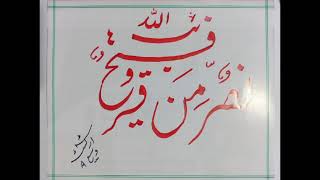 نصرٌ مِنَ الله وفتحٌ قریب